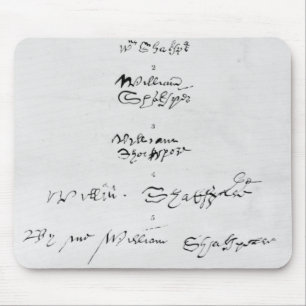 Wm Shakspē
2
William
Shakspēr
3
William
Shakspere
4
Willm Shakspere
5
By me William Shakspeare